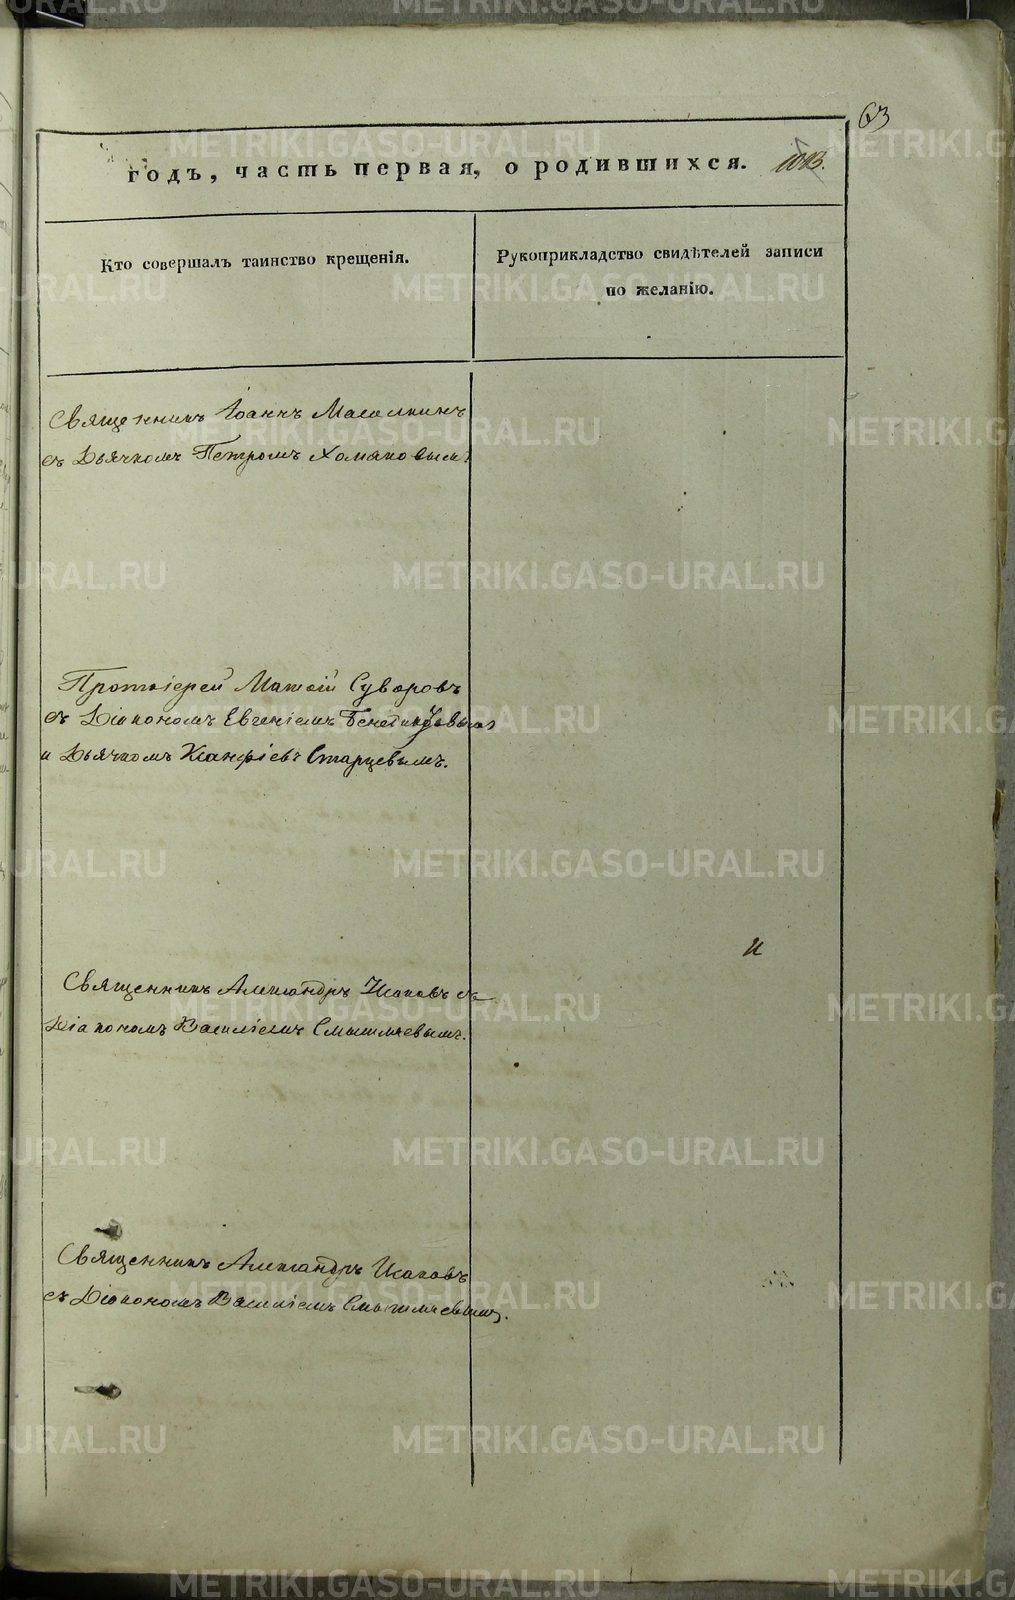 63
годъ, часть первая, о родившихся.
Кто совершалъ таинство крещенія.
Рукоприкладство свидѣтелей записи
по желанію.
Священникъ Іоаннъ
съ Дьячкомъ Петромъ Хомяковымъ
Протоіерей Матѳій Суворовъ
съ Діакономъ Евгеніемъ
и Дьячкомъ Старцевымъ.
Священникъ Александръ Исаковъ съ
Діакономъ Василіемъ Смышляевымъ.
Священникъ Александръ Исаковъ
съ Діакономъ Василіемъ Смышляевымъ.
METRIKI.GASO-URAL.RU